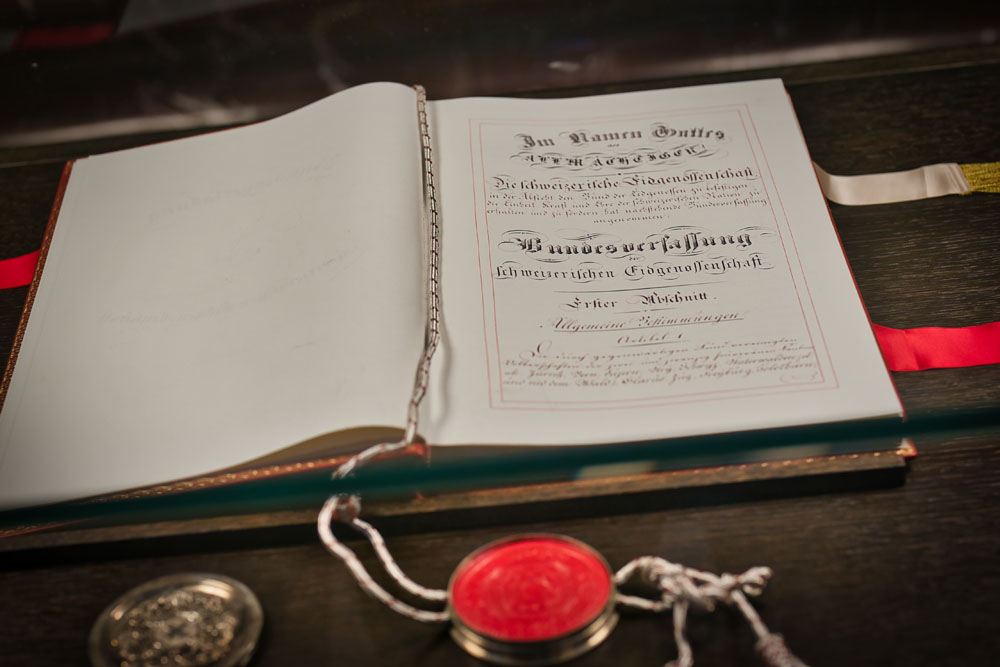 Im Namen Gottes
des
ALLMÄCHTIGEN!
Die schweizerische Eidgenossenschaft
in der Absicht, den Bund der Eidgenossen zu befestigen,
die Einheit, Kraft und Ehre der schweizerischen Nation zu
erhalten und zu fördern, hat nachstehende Bundesverfassung
angenommen:
Bundesverfassung
der
schweizerischen Eidgenossenschaft.
Erster Abschnitt.
Allgemeine Bestimmungen
Artikel 1.
Die durch gegenwärtigen Bund vereinigten
Völkerschaften der zwei und zwanzig souveränen Kantone
als: Zürich, Bern, Luzern, Ury, Schwyz, Unterwalden
Glarus, Zug, Freyburg, Solothurn,